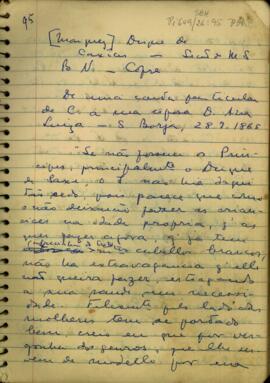 95
SBH
Pi 609/26:95 P81
[Marquez] Duque de
Caxias — Secção M S
B N — Cofre
De uma carta particular
de C. á sua esposa D. Ana
Luiza — S. Borja, 28.9.1865
"Se não fossem os Prin-
cipes, principalmente o Duque
de Saxe, o I. não ia daqui
tão cedo, pois parece que como
não deixarão fazer as crian-
cices na idade propria, q'as
quer fazer agora, q'ja tem
cabellos brancos,
não ha extravagancia q'elle
não queira fazer, estragando
a sua saude sem necessi-
dade. Felizmente pelo lado das
mulheres tem se portado
bem creio eu que por ver-
gonha dos genros, que lhe ser-
vem de modello por ora